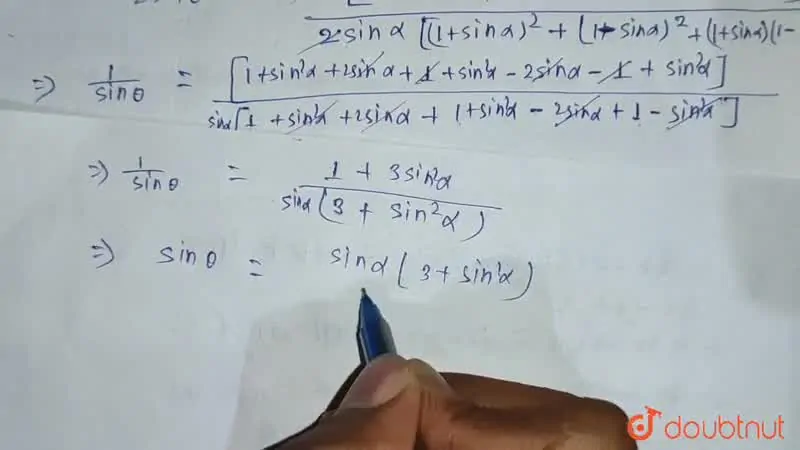 2sinα [(1+sinα)² + (1-sinα)² + (1+sinα)(1-
⇒ 1/sinθ = [1+sin²α+2sinα+1+sin²α-2sinα-1+sin²α] / sinα[1+sin²α+2sinα+1+sin²α-2sinα+1-sin²α]
⇒ 1/sinθ = 1+3sin²α / sinα(3+sin²α)
⇒ sinθ = sinα(3+sin²α)
doubtnut